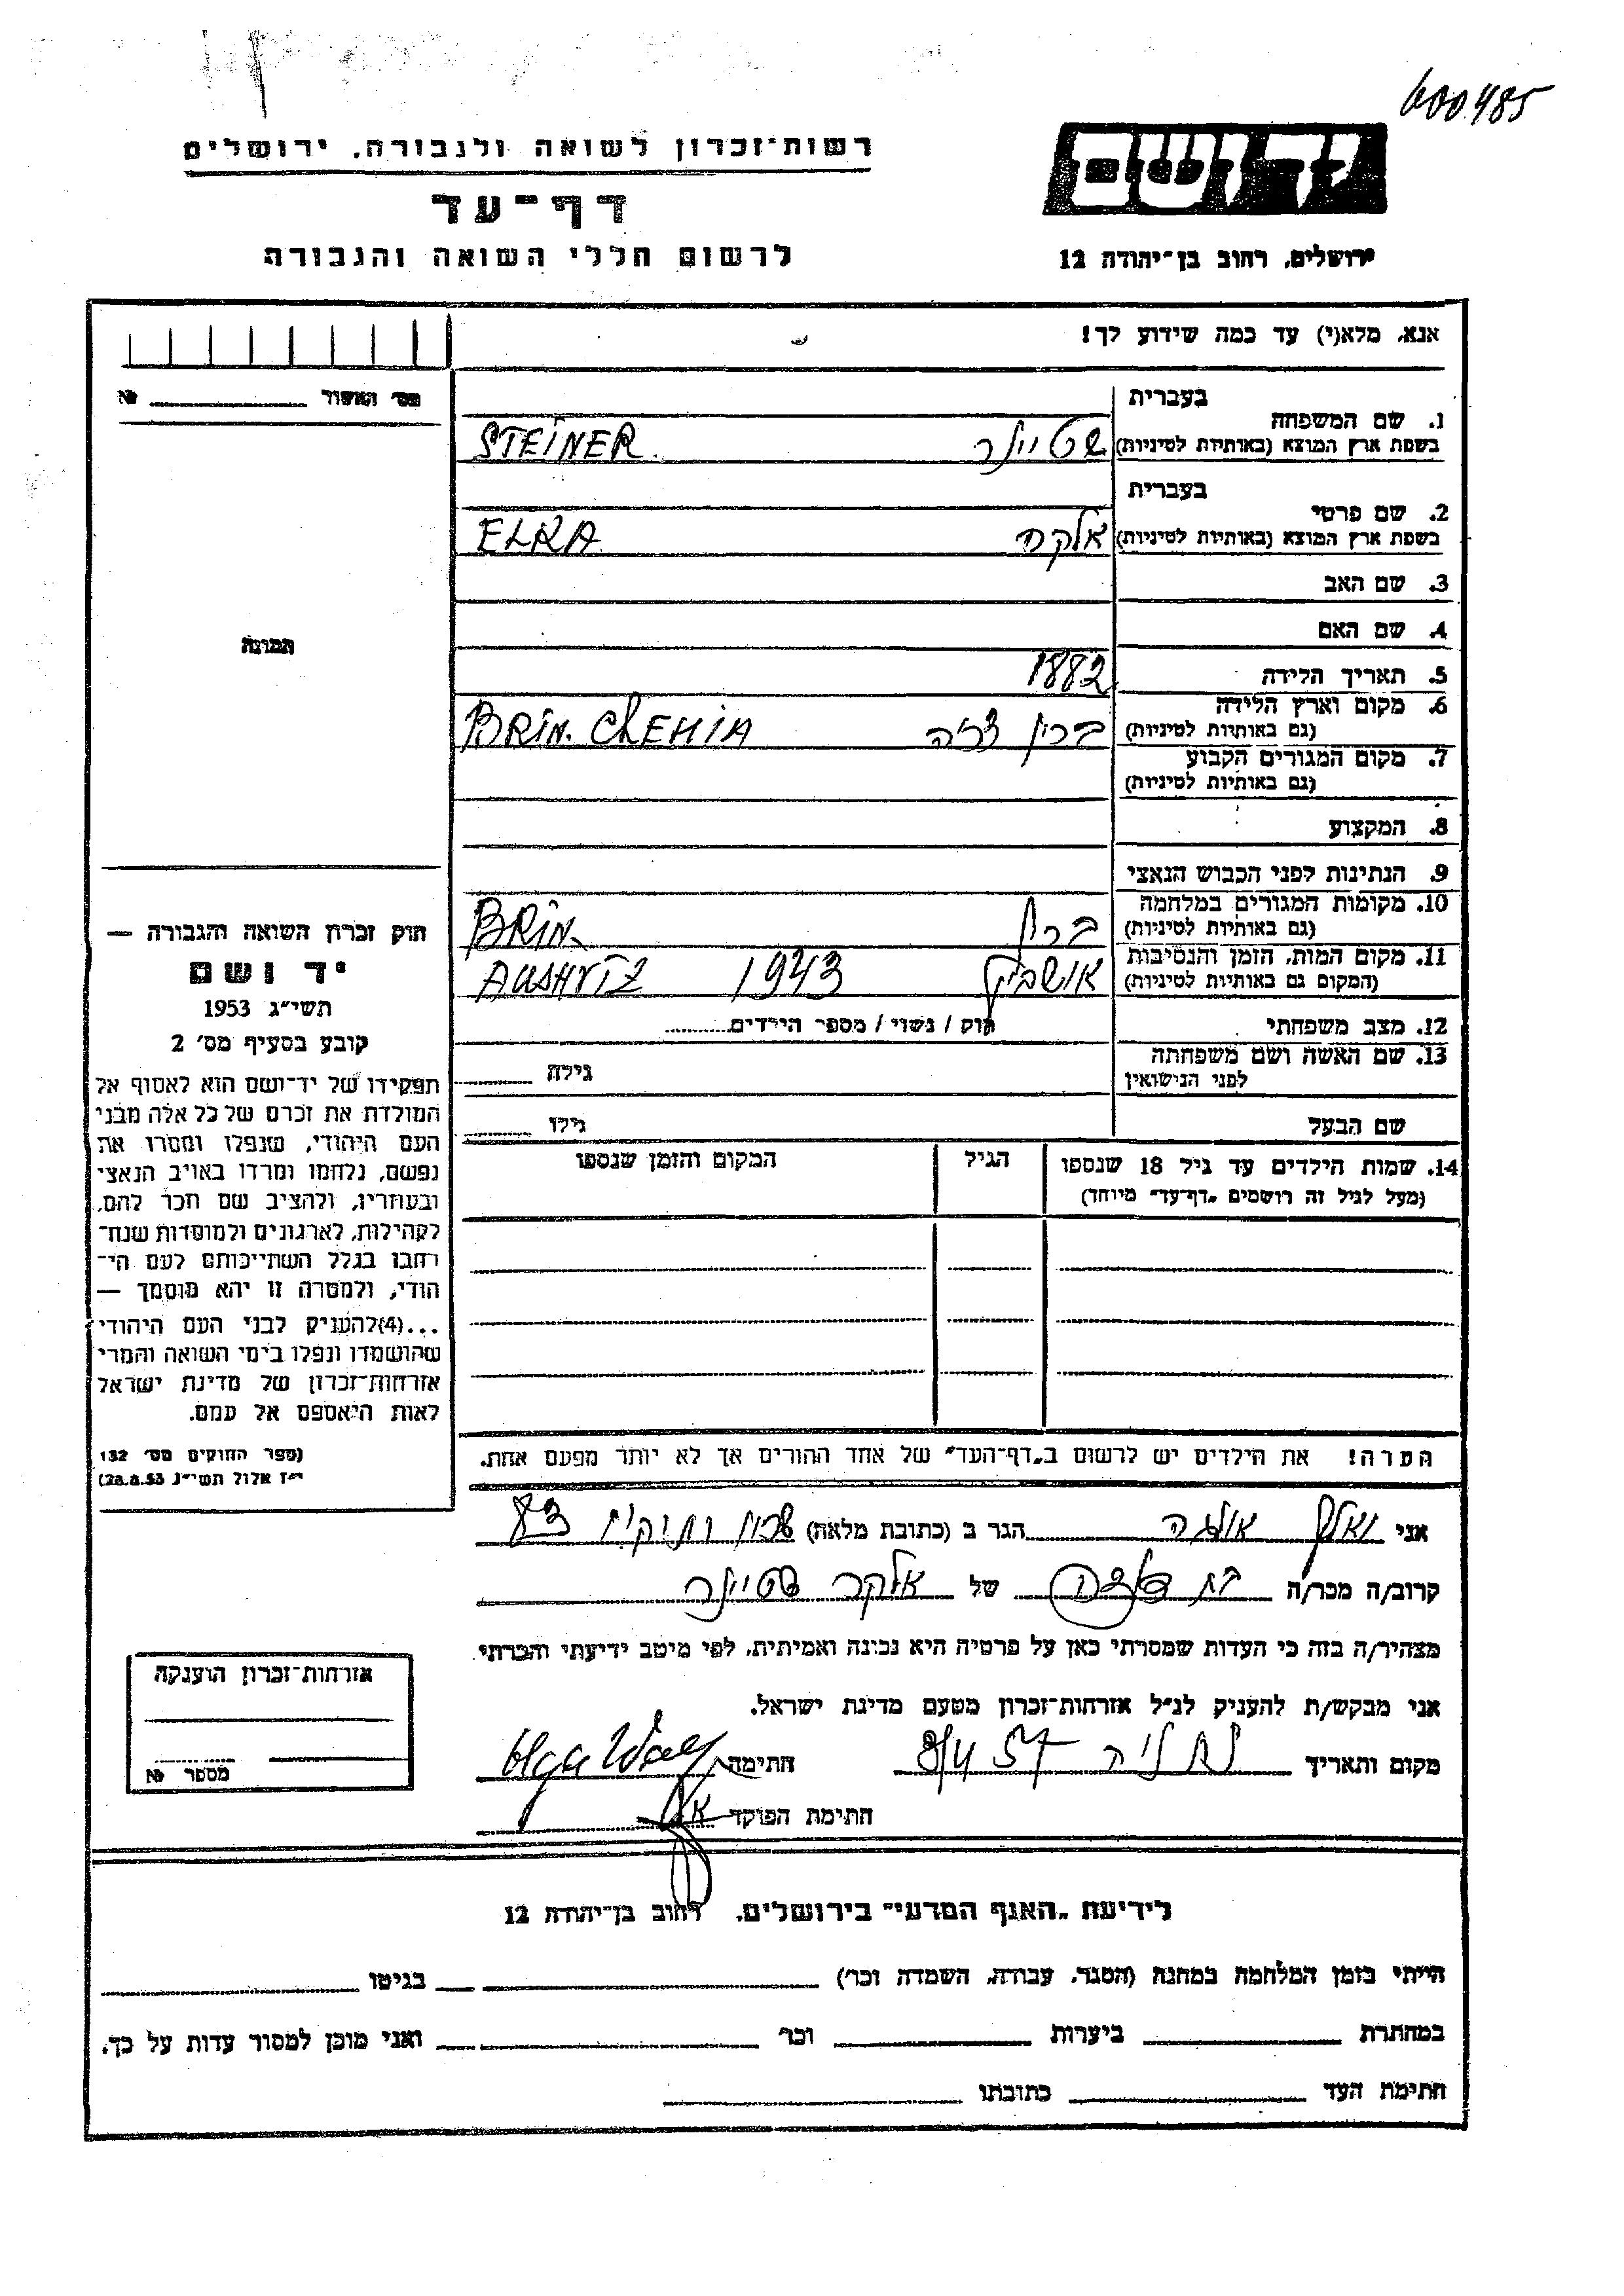 600485
רשות־זכרון לשואה ולגבורה, ירושלים
דף־עד
לרשום חללי השואה והגבורה
יד ושם
ירושלים, רחוב בן־יהודה 12
אנא, מלא(י) עד כמה שידוע לך!
מס׳ האשור № 
בעברית
1. שם המשפחה
בשפת ארץ המוצא (באותיות לטיניות) שטיינר STEINER
בעברית
2. שם פרטי
בשפת ארץ המוצא (באותיות לטיניות) אלקה ELKA
3. שם האב
4. שם האם
תמונה
5. תאריך הלידה 1882
6. מקום וארץ הלידה
(גם באותיות לטיניות) ברין צ'כיה BRIN. CHEHIA
7. מקום המגורים הקבוע
(גם באותיות לטיניות)
8. המקצוע
9. הנתינות לפני הכבוש הנאצי
10. מקומות המגורים במלחמה
(גם באותיות לטיניות) ברין BRIN.
11. מקום המות, הזמן והנסיבות
(המקום גם באותיות לטיניות) אושביץ 1943 AUSHVITZ
12. מצב משפחתי רוק / נשוי / מספר הילדים
13. שם האשה ושם משפחתה
לפני הנישואין גילה
שם הבעל גילו
14. שמות הילדים עד גיל 18 שנספו הגיל המקום והזמן שנספו
(מעל לגיל זה רושמים „דף־עד" מיוחד)
חוק זכרון השואה והגבורה —
יד ושם
תשי״ג 1953
קובע בסעיף מס׳ 2
תפקידו של יד־ושם הוא לאסוף אל
המולדת את זכרם של כל אלה מבני
העם היהודי, שנפלו ומסרו את
נפשם, נלחמו ומרדו באויב הנאצי
ובעוזריו, ולהציב שם וזכר להם,
לקהילות, לארגונים ולמוסדות שנח־
רבו בגלל השתייכותם לעם הי־
הודי, ולמטרה זו יהא מוסמך —
...(4)להעניק לבני העם היהודי
שהושמדו ונפלו בימי השואה והמרי
אזרחות־זכרון של מדינת ישראל
לאות היאספם אל עמם.
(ספר החוקים מס׳ 132
י״ז אלול תשי״ג 28.8.53)
הערה! את הילדים יש לרשום ב„דף־העד" של אחד ההורים אך לא יותר מפעם אחת.
אני אולגה הגר ב (כתובת מלאה)
קרוב/ה מכר/ה של אלקה שטיינר
מצהיר/ה בזה כי העדות שמסרתי כאן על פרטיה היא נכונה ואמיתית, לפי מיטב ידיעתי והכרתי.
אני מבקש/ת להעניק לנ״ל אזרחות־זכרון מטעם מדינת ישראל.
מקום ותאריך נתניה 8/4 57 חתימה
חתימת הפוקד
אזרחות־זכרון הוענקה
מספר №
לידיעת „האגף המדעי" בירושלים, רחוב בן־יהודה 12
הייתי בזמן המלחמה במחנה (הסגר, עבודה, השמדה וכר׳) בגיטו
במחתרת ביערות וכר׳ ואני מוכן למסור עדות על כך.
חתימת העד כתובתו